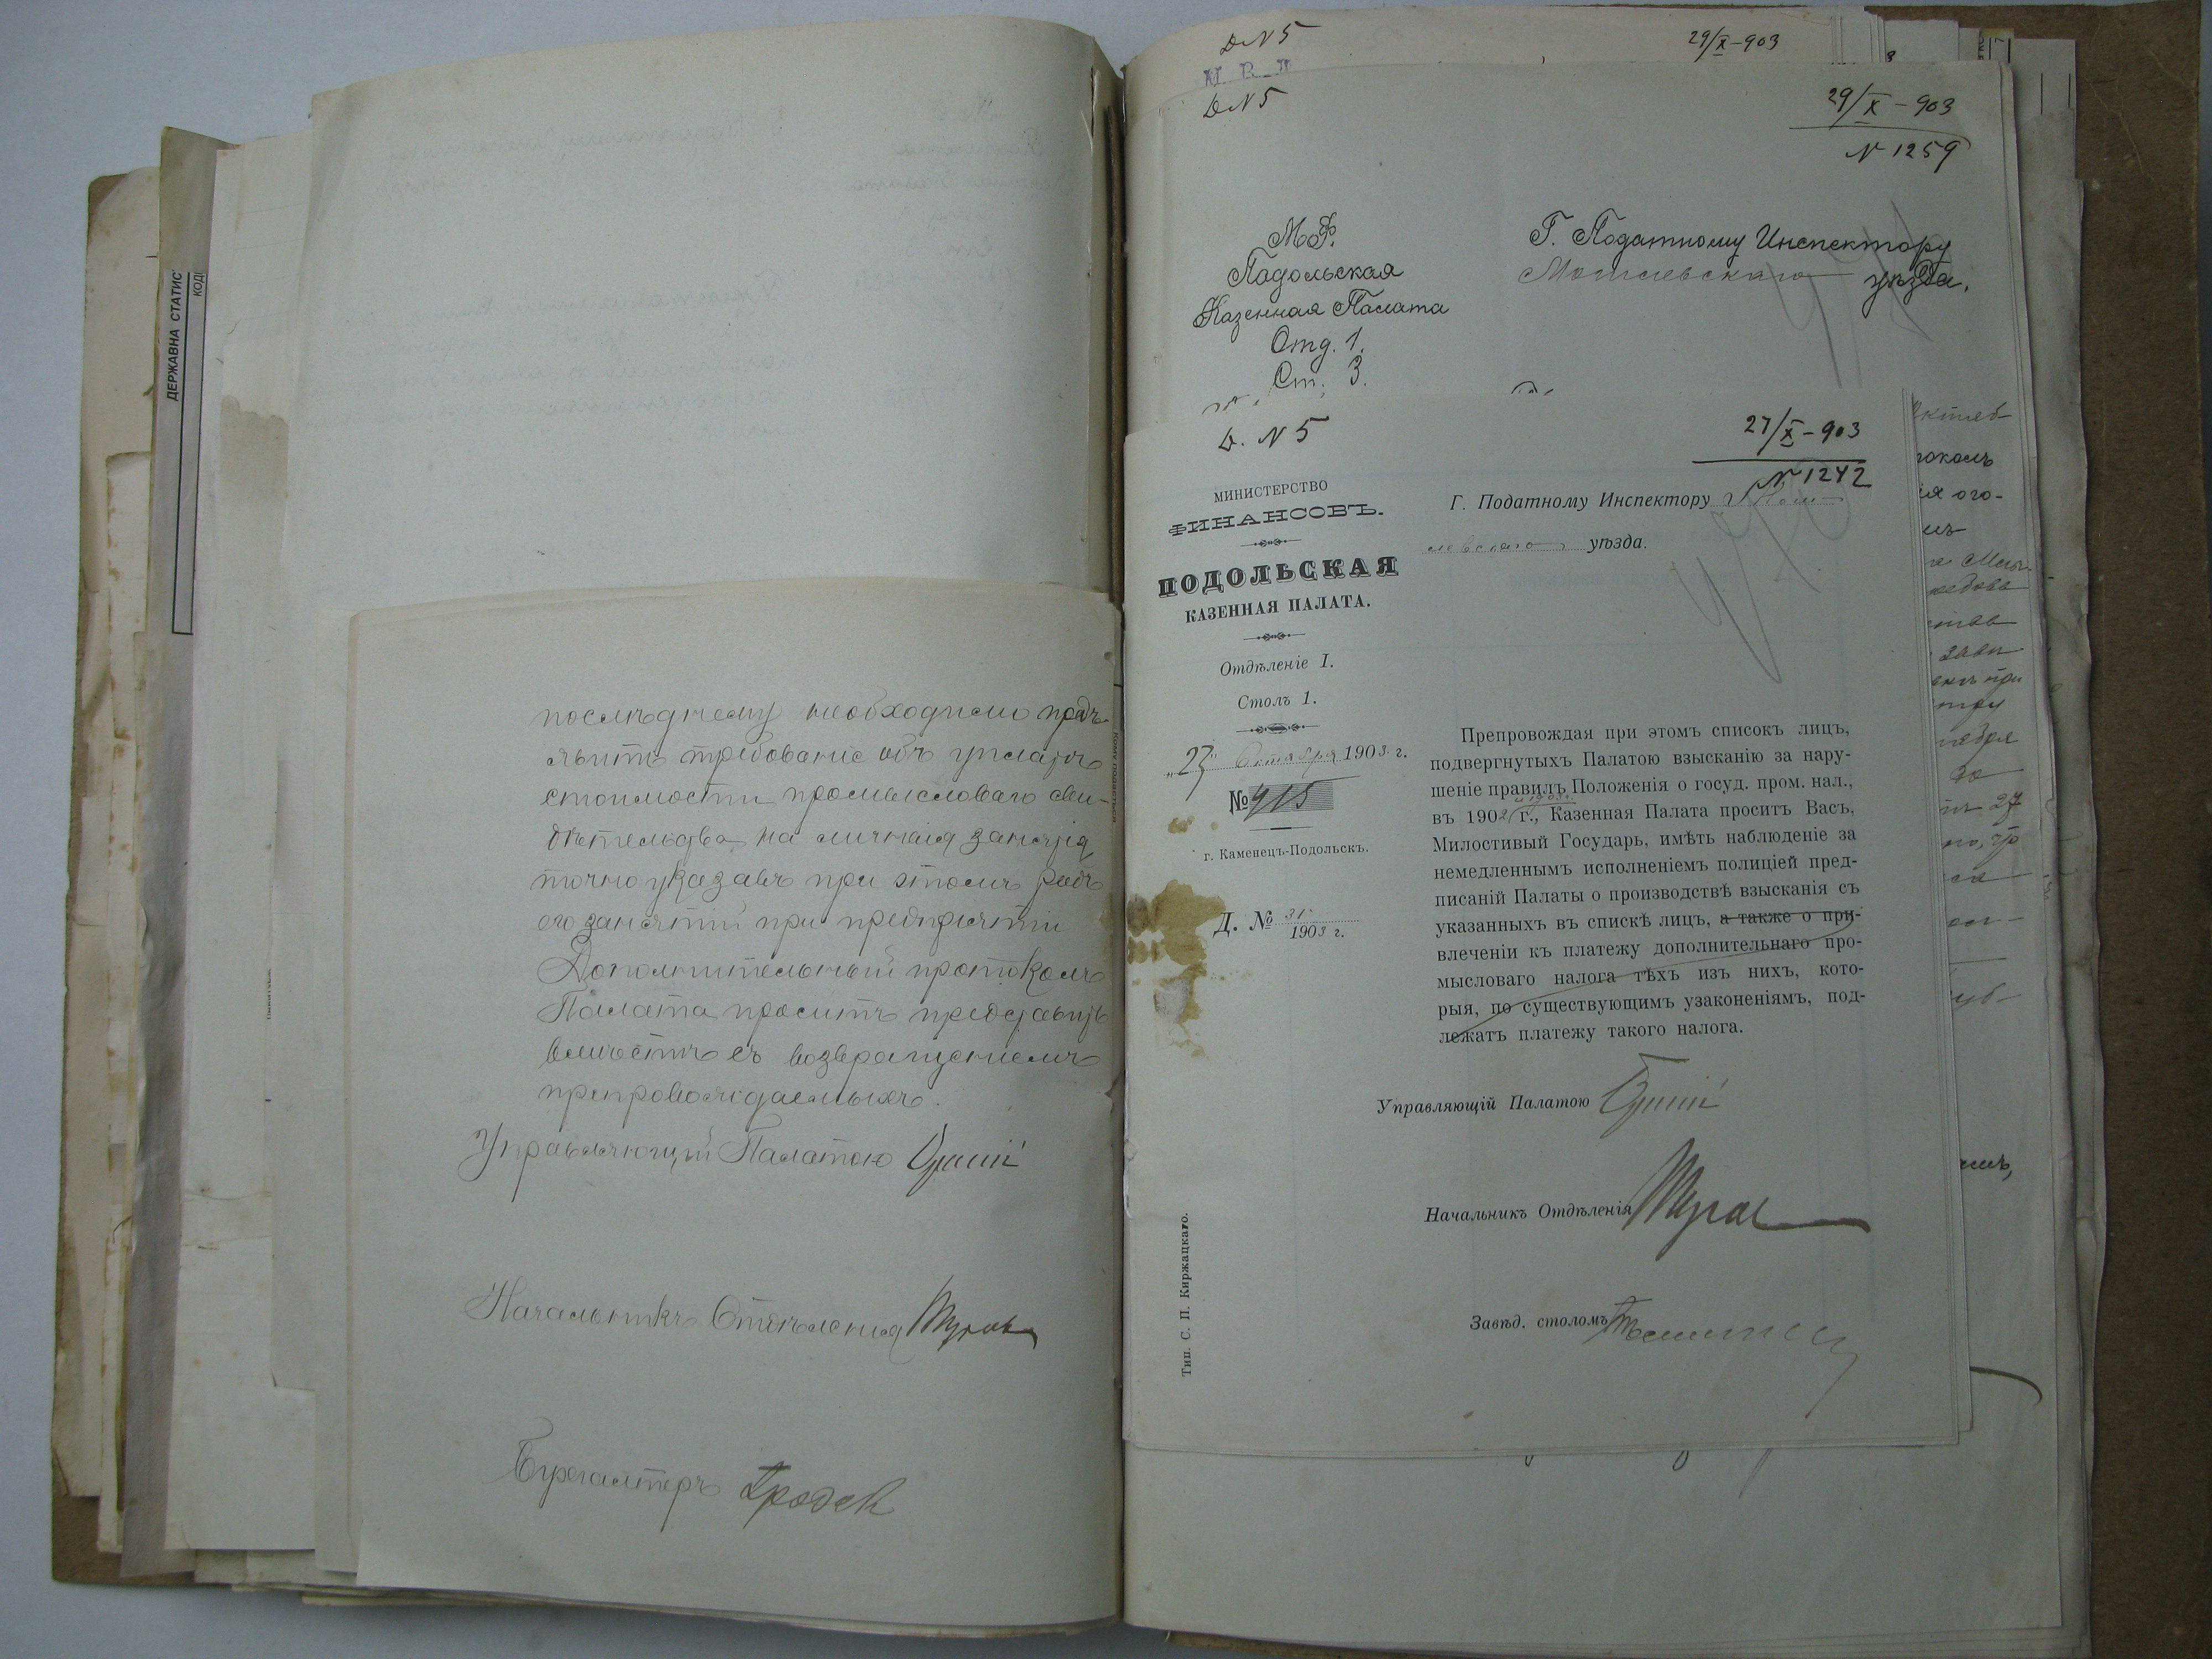 ДЕРЖАВНА СТАТИС
КОДИ
послѣднему необходимо предъ-
явить требованіе объ уплатѣ
стоимости промысловаго сви-
дѣтельства на личныя занятія
точно указавъ при этомъ родъ
его занятій при предпріятіи
Дополнительный протоколъ
Палата проситъ представить
вмѣстѣ съ возвращеніемъ
препровождаемыхъ.
Управляющій Палатою
Начальникъ Отдѣленія
Бухгалтеръ
Кому подається
D N 5
29/X-903
D N 5
29/X-903
N 1259
М.Ф.
Подольская
Казенная Палата
Отд. 1.
Ст. 3.
Г. Податному Инспектору
Могилевскаго уѣзда.
D. N 5
27/X-903
N 1242
МИНИСТЕРСТВО
ФИНАНСОВЪ.
ПОДОЛЬСКАЯ
КАЗЕННАЯ ПАЛАТА.
Отдѣленіе I.
Столъ 1.
„23" Октября 1903 г.
№ 915
г. Каменецъ-Подольскъ.
Д. № 31
1903 г.
Г. Податному Инспектору Моги
левскаго уѣзда.
Препровождая при этомъ списокъ лицъ,
подвергнутыхъ Палатою взысканію за нару-
шеніе правилъ Положенія о госуд. пром. нал.,
и 1903 г.
въ 1902 г., Казенная Палата проситъ Васъ,
Милостивый Государь, имѣть наблюденіе за
немедленнымъ исполненіемъ полиціей пред-
писаній Палаты о производствѣ взысканія съ
указанныхъ въ спискѣ лицъ, а также о при-
влеченіи къ платежу дополнительнаго про-
мысловаго налога тѣхъ изъ нихъ, кото-
рыя, по существующимъ узаконеніямъ, под-
лежатъ платежу такого налога.
Управляющій Палатою
Начальникъ Отдѣленія
Завѣд. столомъ
Тип. С. П. Киржацкаго.